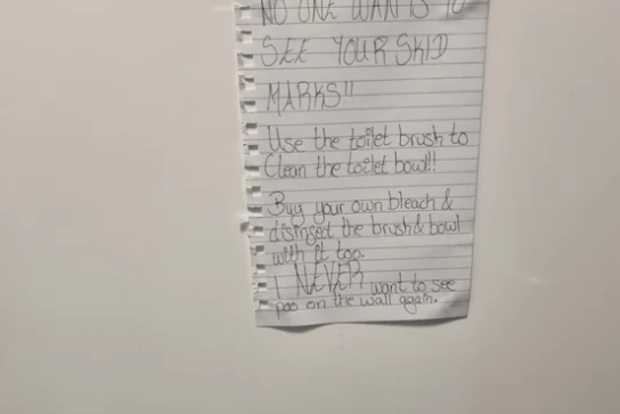 NO ONE WANTS TO
SEE YOUR SKID
MARKS!!
Use the toilet brush to
Clean the toilet bowl!!
Buy your own bleach &
disinfect the brush & bowl
with it too.
I NEVER want to see
poo on the wall again.